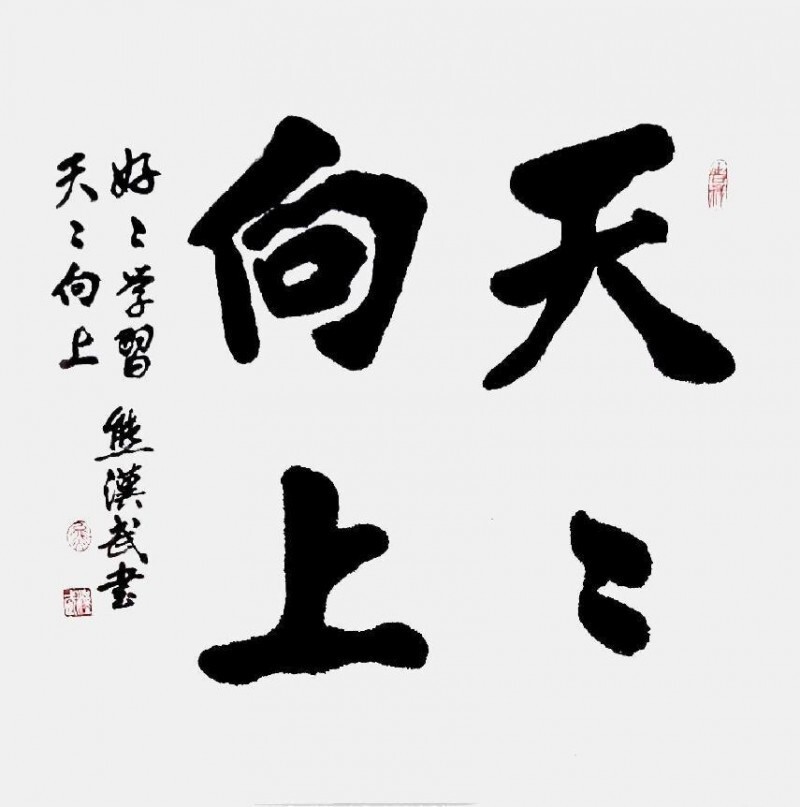 天〻
向上
好〻学習
天〻向上
熊漢武書